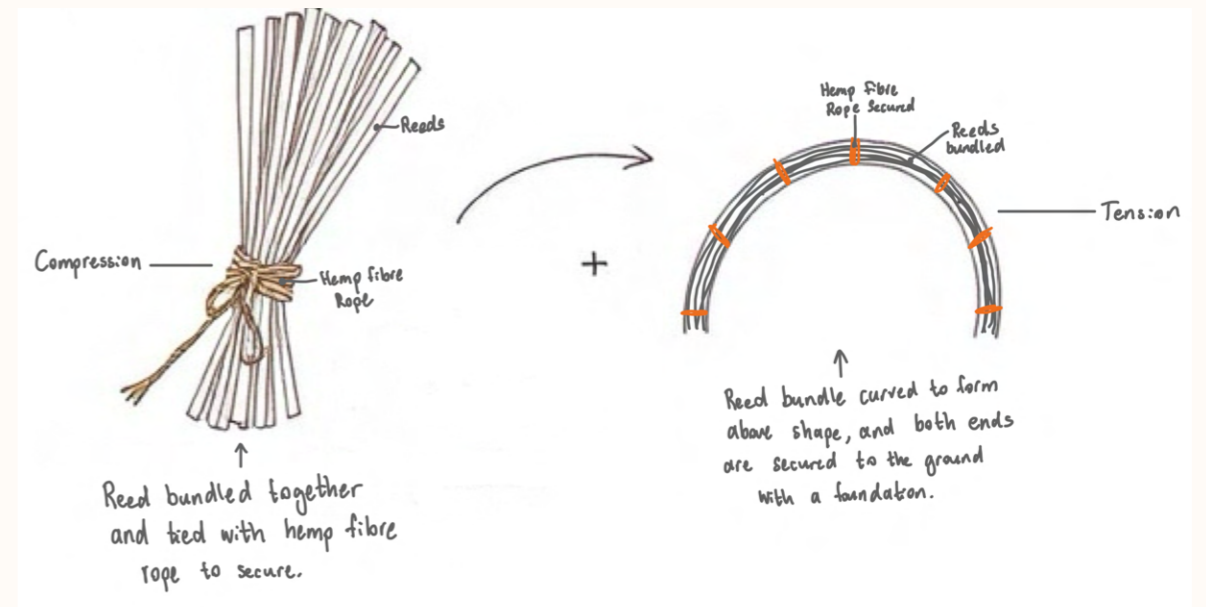 Reeds
Compression
Hemp fibre
Rope
Reed bundled together
and tied with hemp fibre
rope to secure.
+
Hemp fibre
Rope secured
Reeds
bundled
Tension
Reed bundle curved to form
above shape, and both ends
are secured to the ground
with a foundation.